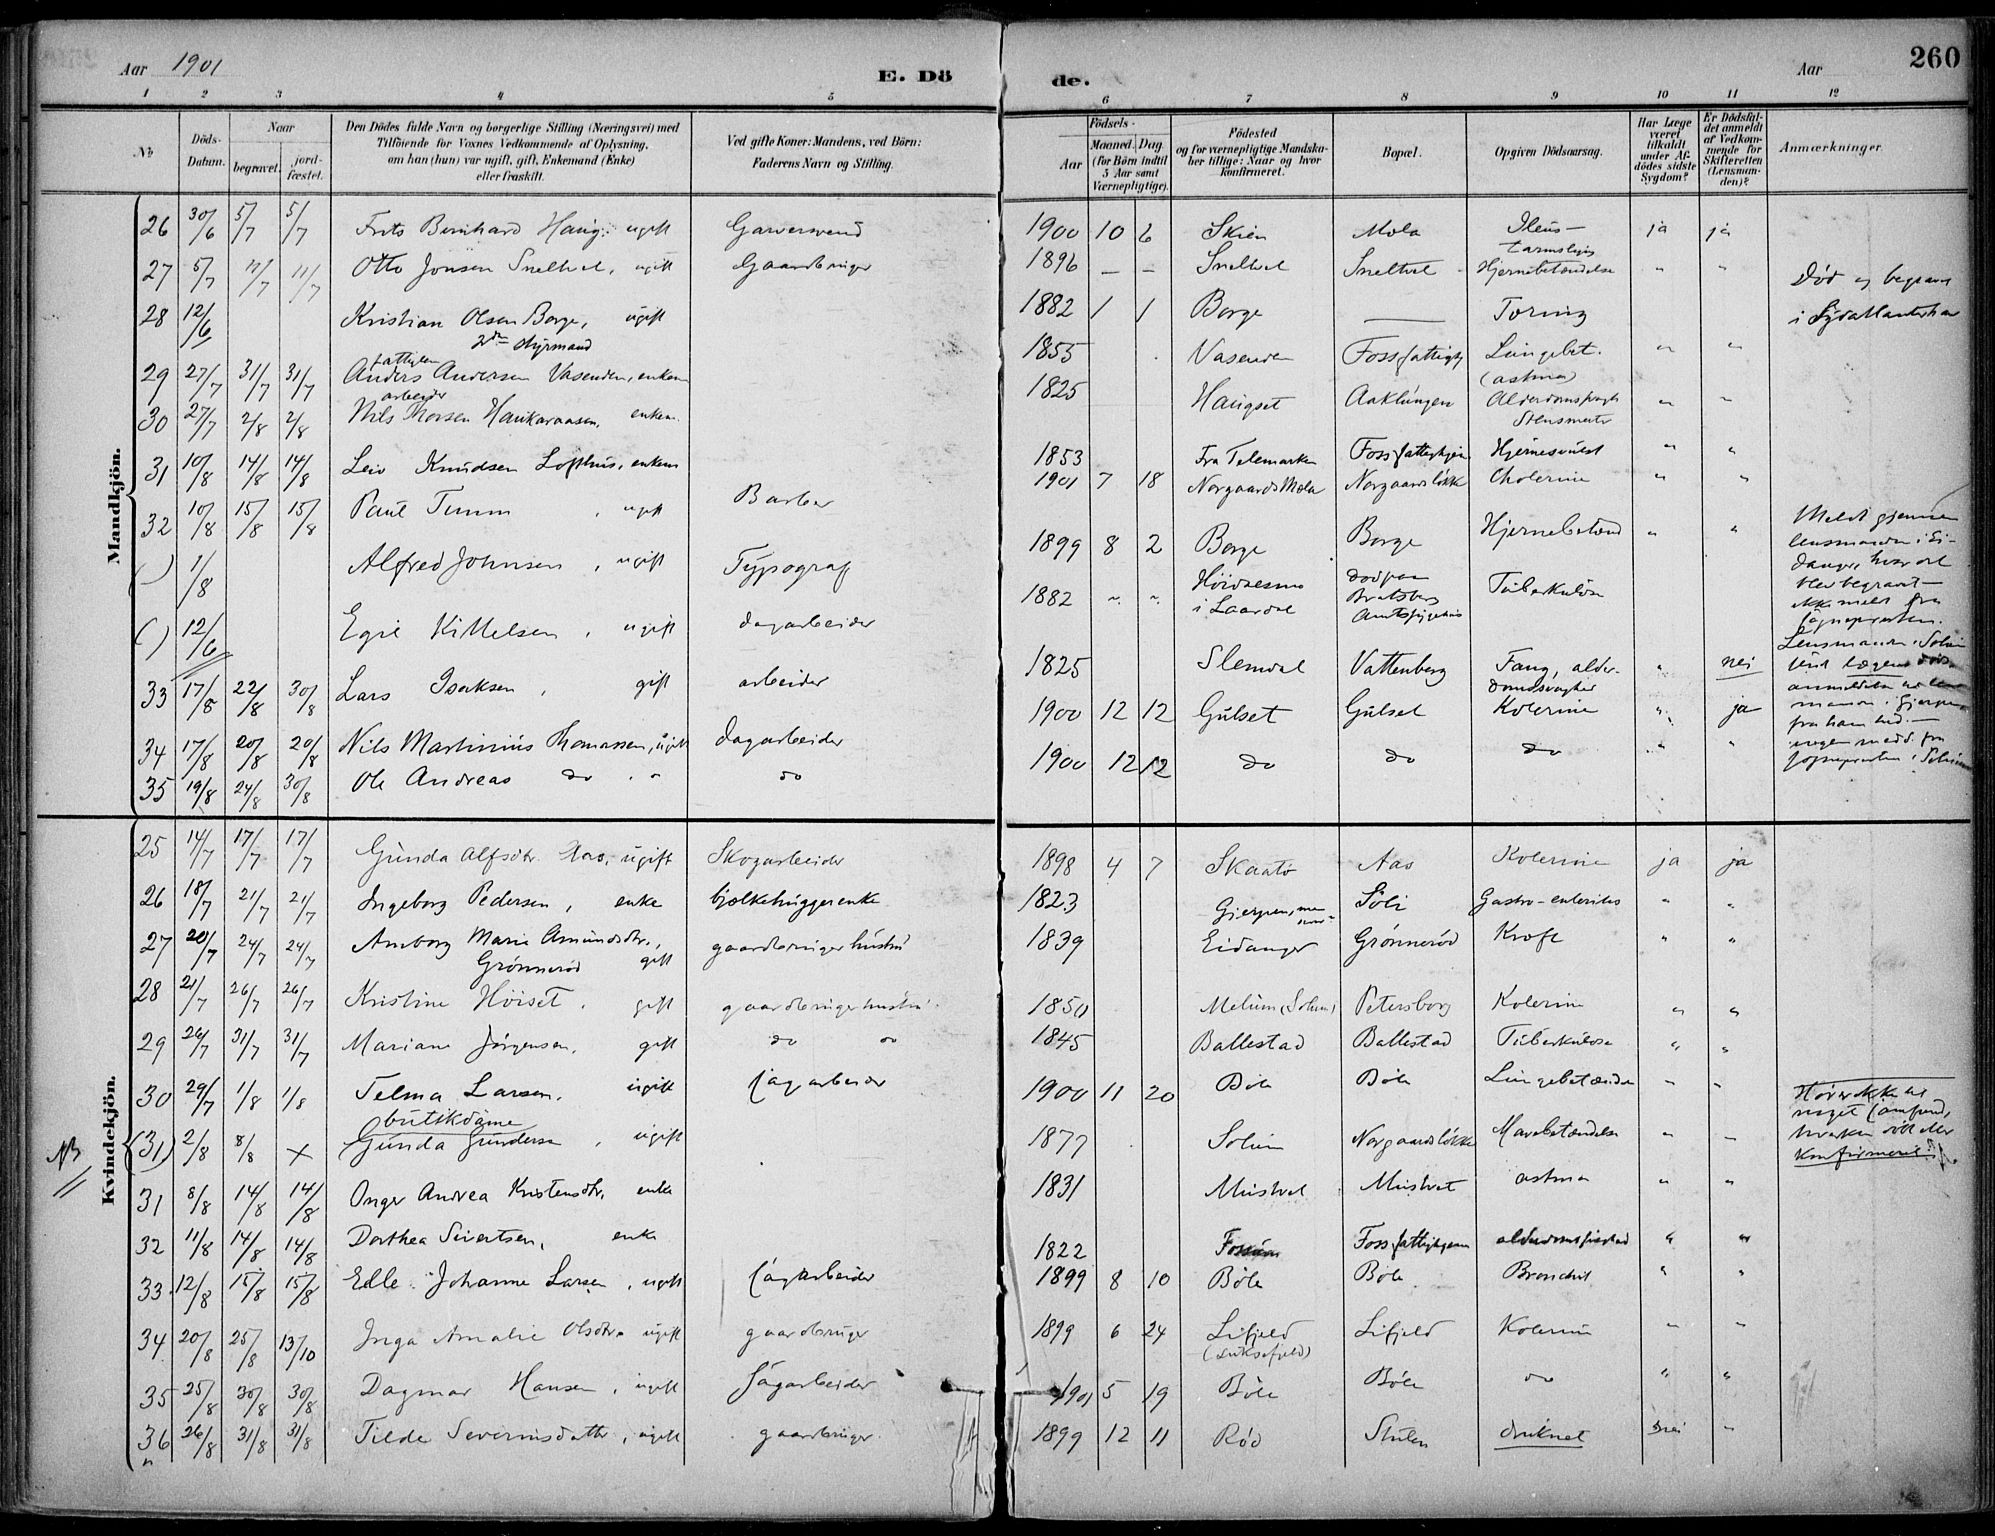 Aar 1901
E. Dö de.
Aar
260
1 2 3 4 5 6 7 8 9 10 11 12
No
Döds-Datum.
Naar
begravet.
jordfæstet.
Den Dödes fulde Navn og borgerlige Stilling (Næringsvei) med
Tilföiende for Voxnes Vedkommende af Oplysning,
om han (hun) var ugift, gift, Enkemand (Enke)
eller fraskilt.
Ved gifte Koner: Mandens, ved Börn:
Faderens Navn og Stilling.
Födsels-
Aar
Maaned. Dag.
(for Börn indtil
5 Aar samt
Værnepligtige).
Födested
og for værnepligtige Mandska-
ber tillige: Naar og hvor
Konfirmeret.
Bopæl.
Opgiven Dödsaarsag.
Har Læge
været
tilkaldt
under Af-
dödes sidste
Sygdom?
Er Dödsfal-
det anmeldt
af Vedkom-
mende for
Skifteretten
(Lensman-
den)?
Anmærkninger.
Mandkjön.
26 30/6 5/7 5/7 Frits Bernhard Haug. ugift Garversvend 1900 10 6 Skien Mæla Ileus- ja ja
27 5/7 11/7 11/7 Otto Jonsen Sneltvet, ugift Gaardbruger 1896 – – Sneltvet Sneltvet Hjernebetændelse " "
28 12/6 Kristian Olsen Borge, ugift 1882 1 1 Borge — Død og begravet
2den styrmand i Sydatlanterhav
29 27/7 31/7 31/7 Anders Andersen Vasenden, enkem 1855 Vasenden Foss fattigh Lungebet. " "
(astma)
arbeider
30 27/7 2/8 2/8 Nils Thorsen Haukaraasen, enkem. 1825 Haugset Aaklungen " "
31 10/8 14/8 14/8 Leiv Knudsen Lofthus, enkem 1853 Fra Telemarken Foss fattighjem Hjernesvulst " "
32 10/8 15/8 15/8 Paul Timm, ugift Barber 1901 7 18 Norgaards Mæla Norgaardsløkke Cholerine " "
( ) 1/8 Alfred Johnsen, ugift Typograf 1899 8 2 Borge Borge Hjernebetænd " "
Meldt gjennem
lensmanden i Ei-
danger, hvor det
blev begravet –
ikke meldt fra
sognepresten.
( ) 12/6 Egil Kittelsen, ugift dagarbeider 1882 i Laardal Bratsberg Tuberkulose
Amtssygehus
33 17/8 22/8 30/8 Lars Isaksen, gift arbeider 1825 Slemdal Vattenberg alder- " nei
domssvaghet
Lensmanden i Solum
34 17/8 20/8 20/8 Nils Martinius Thomassen, ugift dagarbeider 1900 12 12 Gulset Gulset Kolerine " ja
35 19/8 24/8 30/8 Ole Andreas do " do 1900 12 12 do do do " "
Kvindekjön.
25 14/7 17/7 17/7 Gunda Alfsdtr. Aas, ugift Skogarbeider 1898 4 7 Skaatø Aas Kolerine ja ja
26 18/7 21/7 21/7 Ingeborg Pedersen, enke bjelkehuggerenke 1823 Gjerpen, Soli Gastro-enteritis " "
27 20/7 24/7 24/7 Anborg Marie Amundsdtr., gaardbrugerhustru 1839 Eidanger Grønnerød Kræft " "
Grønnerød gift
28 21/7 26/7 26/7 Kristine Høiset, gift gaardbrugerhustru 1850 Melum (Solum) Petersborg Kolerine " "
29 26/7 31/7 31/7 Mariane Jørgensen, gift do do 1845 Ballestad Ballestad Tuberkulose " "
30 29/7 1/8 1/8 Telma Larsen, ugift Sagarbeider 1900 11 20 Bøle Bøle Lungebetændelse " "
butikdame
NB (31) 2/8 8/8 x Gunda Gundersen, ugift 1877 Solum Norgaardsløkke Mavebetændelse " "
Hører ikke til
noget samfund,
hverken døbt eller
konfirmeret
31 8/8 14/8 14/8 Inger Andrea Kristensdtr. enke 1831 Mustvet Mustvet astma " "
32 11/8 14/8 14/8 Dorthea Sivertsen, enke 1822 Fossum Foss fattighjem " "
33 12/8 15/8 15/8 Edle Johanne Larsen, ugift Sagarbeider 1899 8 10 Bøle Bøle Bronchit " "
34 20/8 25/8 13/10 Inga Amalie Olsdtr. ugift gaardbruger 1899 6 24 Lifjeld Lifjeld Kolerine " "
(Luksefjeld)
35 25/8 30/8 30/8 Dagmar Hansen, ugift Sagarbeider 1901 5 19 Bøle Bøle do " "
36 26/8 31/8 31/8 Tilde Severinsdatter, ugift gaardbruger 1899 12 11 Rød Stulen druknet nei "